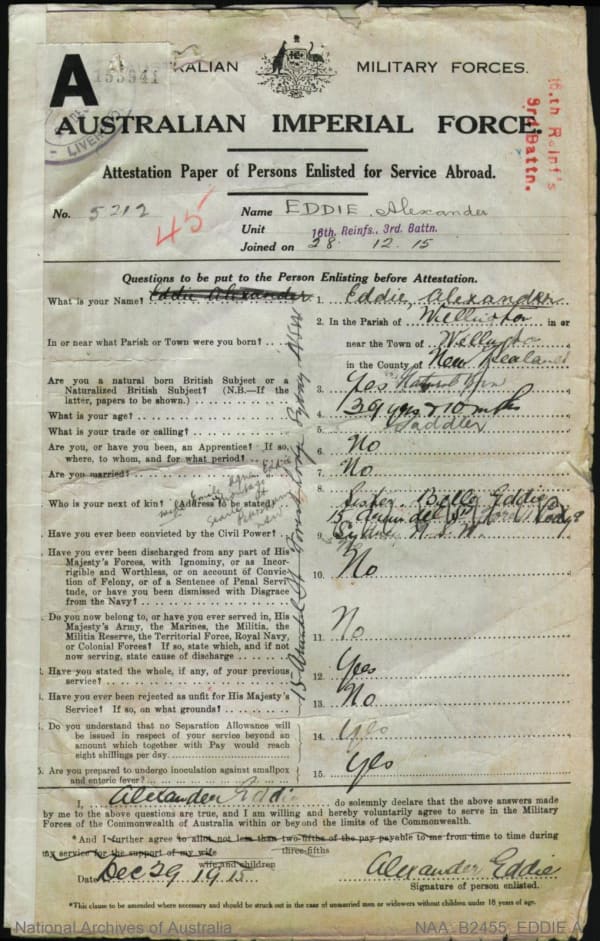 A
155941
AUSTRALIAN MILITARY FORCES.
LIVERPOOL
AUSTRALIAN IMPERIAL FORCE.
16th Reinf's
3rd Battn.
Attestation Paper of Persons Enlisted for Service Abroad.
No. 5212
45
Name EDDIE, Alexander
Unit 16th. Reinfs., 3rd. Battn.
Joined on 28. 12. 15
Questions to be put to the Person Enlisting before Attestation.
What is your Name? Eddie Alexander 1. Eddie, Alexander
In or near what Parish or Town were you born? 2. In the Parish of Wellington in or
near the Town of Wellington
in the County of New Zealand
Are you a natural born British Subject or a
Naturalized British Subject? (N.B.—If the
latter, papers to be shown.) 3. Yes Natural Born
What is your age? 4. 39 yrs & 10 mths
What is your trade or calling? 5. Saddler
Are you, or have you been, an Apprentice? If so,
where, to whom, and for what period? 6. No
Are you married? 7. No
8. Sister. Bella Eddie
Who is your next of kin? (Address to be stated) 15 Arundel St
Sydney N.S.W.
wife Emily Agnes Eddie
15 Arundel St Forest Lodge Sydney NSW
Have you ever been convicted by the Civil Power? 9. No
Have you ever been discharged from any part of His
Majesty's Forces, with Ignominy, or as Incor-
rigible and Worthless, or on account of Convic-
tion of Felony, or of a Sentence of Penal Servi-
tude, or have you been dismissed with Disgrace
from the Navy? 10. No
Do you now belong to, or have you ever served in, His
Majesty's Army, the Marines, the Militia, the
Militia Reserve, the Territorial Force, Royal Navy,
or Colonial Forces? If so, state which, and if not
now serving, state cause of discharge 11. No
Have you stated the whole, if any, of your previous
service? 12. Yes
Have you ever been rejected as unfit for His Majesty's
Service? If so, on what grounds? 13. No
Do you understand that no Separation Allowance will
be issued in respect of your service beyond an
amount which together with Pay would reach
eight shillings per day 14. Yes
Are you prepared to undergo inoculation against smallpox
and enteric fever? 15. Yes
I, Alexander Eddie do solemnly declare that the above answers made
by me to the above questions are true, and I am willing and hereby voluntarily agree to serve in the Military
Forces of the Commonwealth of Australia within or beyond the limits of the Commonwealth.
*And I further agree to allot not less than two-fifths of the pay payable to me from time to time during
three-fifths
my service for the support of my wife
wife and children
Date Dec 29 1915 Alexander Eddie
Signature of person enlisted.
*This clause to be amended where necessary and should be struck out in the case of unmarried men or widowers without children under 18 years of age.
National Archives of Australia NAA: B2455, EDDIE A